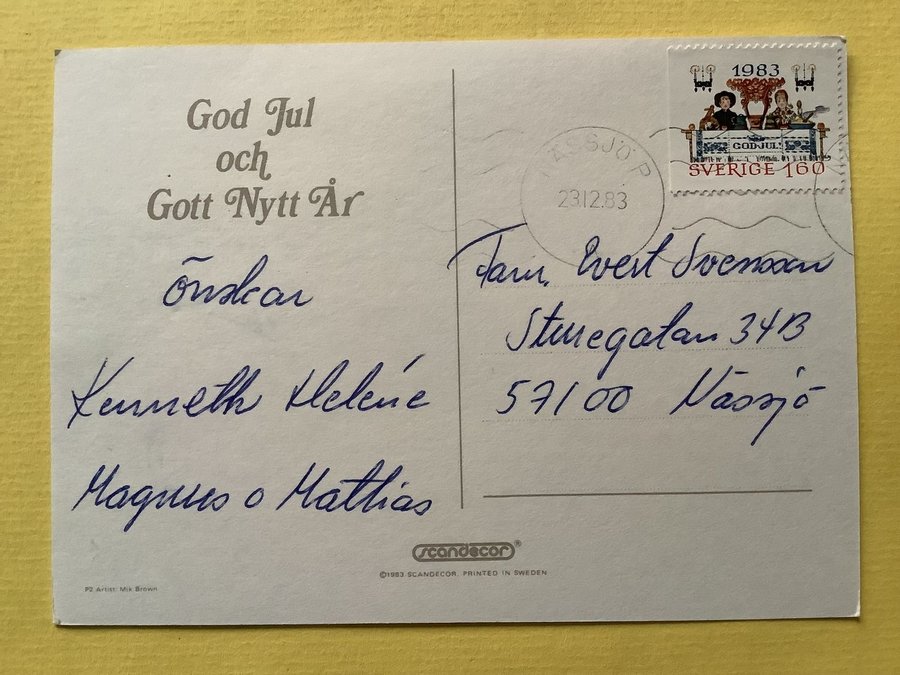 God Jul
och
Gott Nytt År
önskar
Kenneth Heléne
Magnus o Mathias
1983
GOD JUL!
SVERIGE 160
ÄSSJÖ P
23.12.83
Fam. Evert Svensson
Sturegatan 34B
57100 Nässjö
scandecor®
©1983 SCANDECOR. PRINTED IN SWEDEN
P2 Artist: Mik Brown